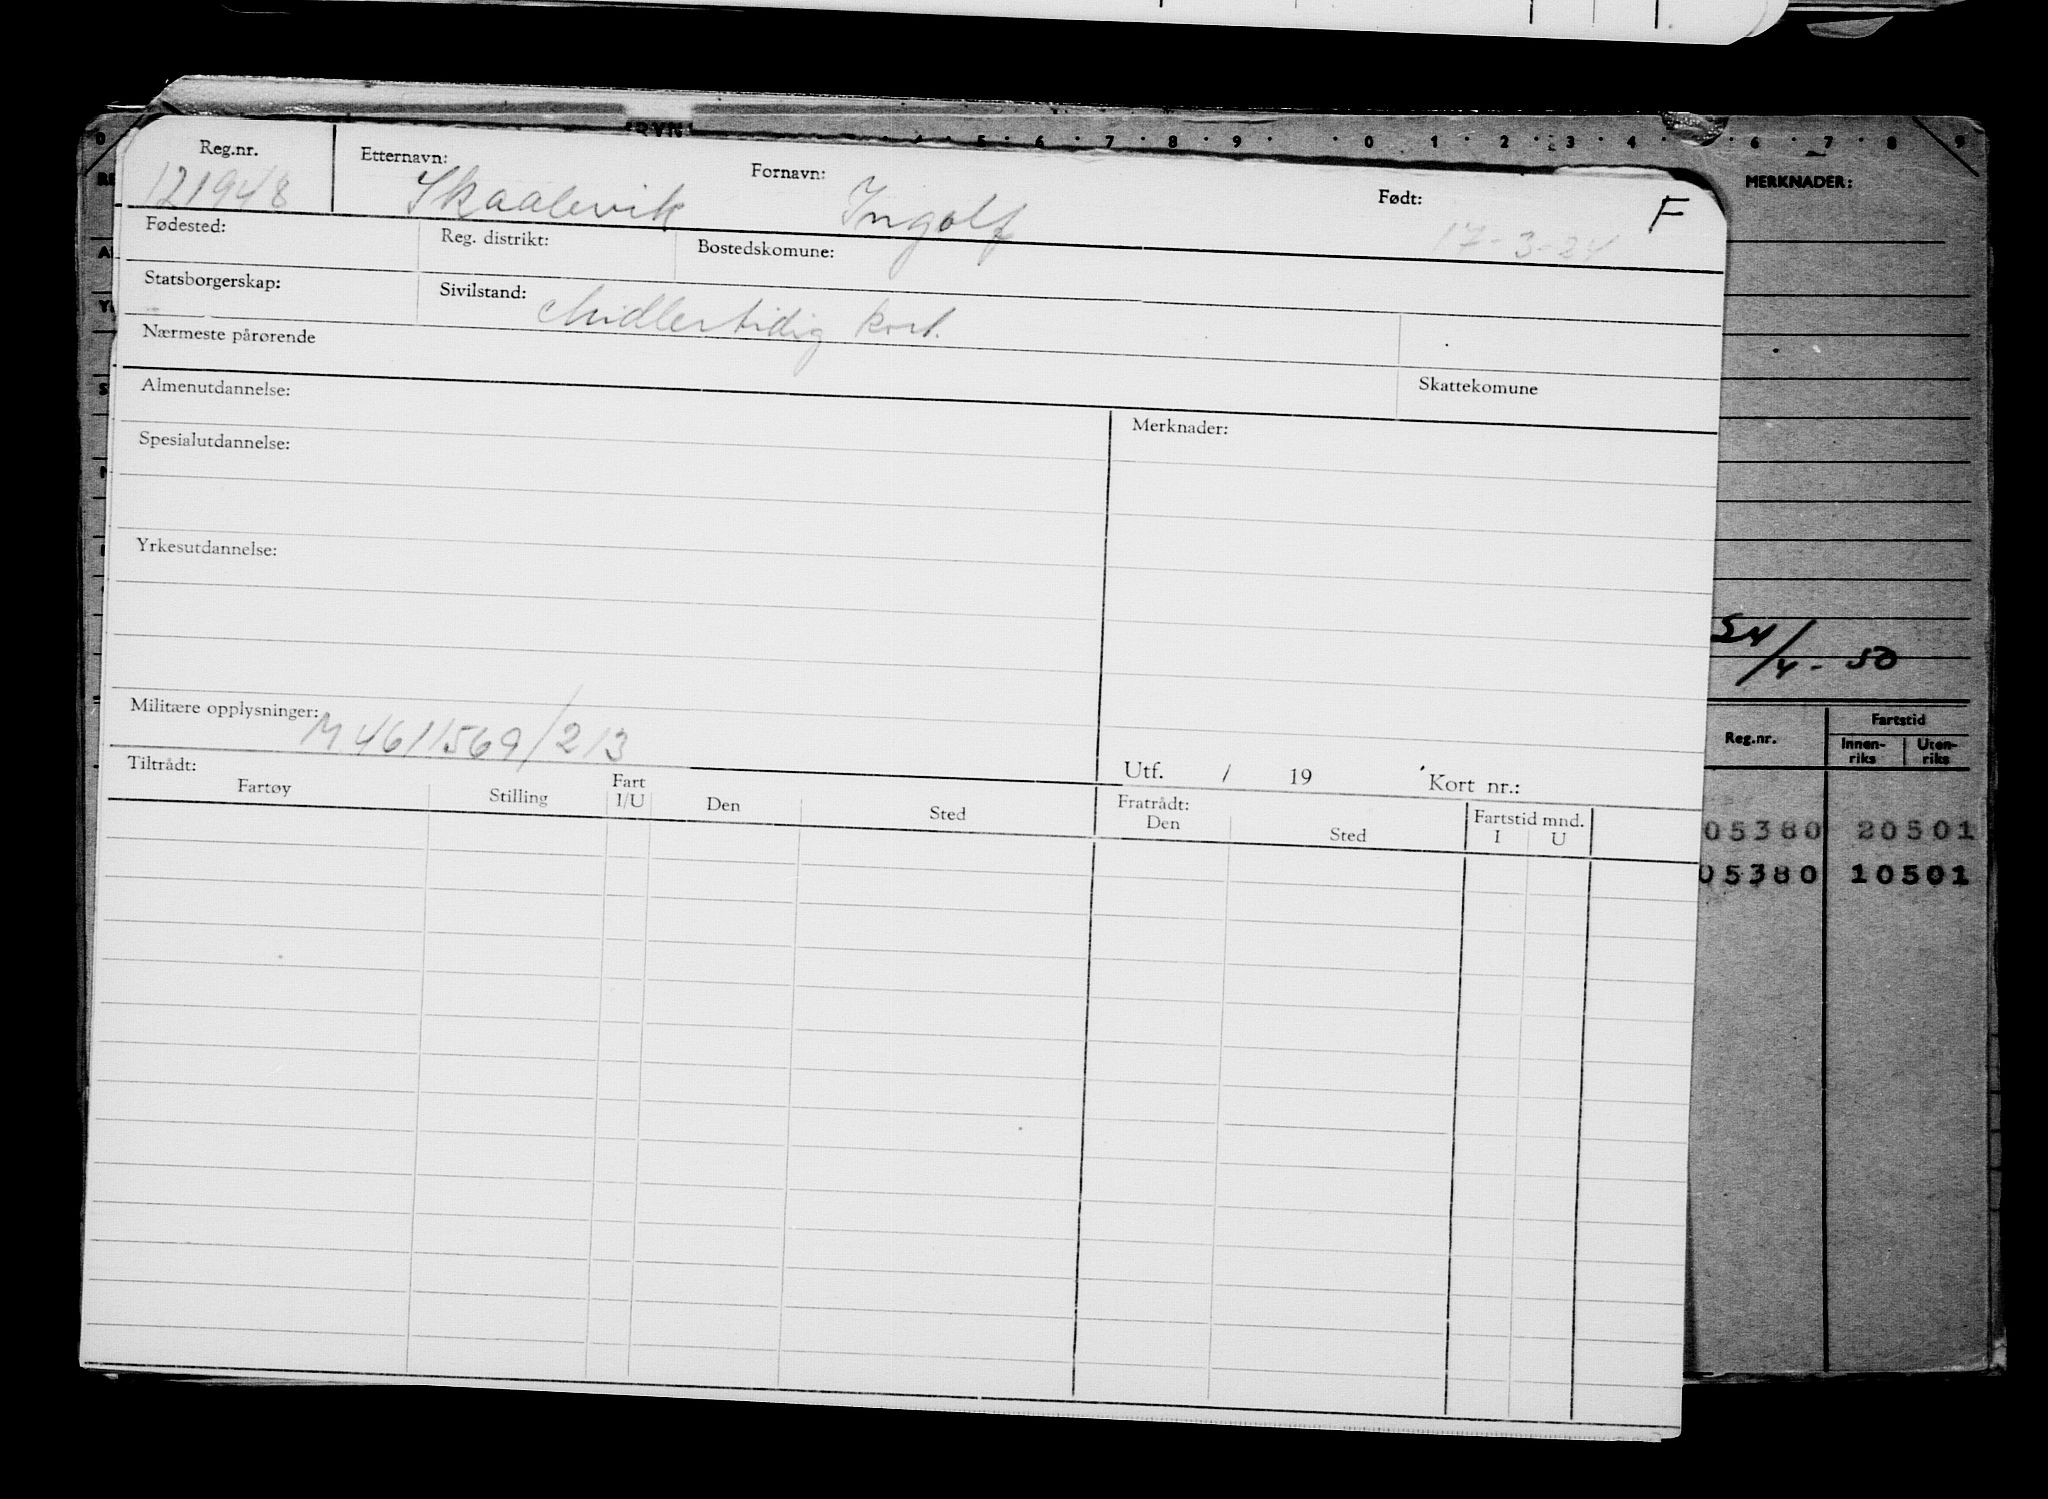 RYN
4 5 6 7 8 9 0 1 2 3 4 6 7 8 9
MERKNADER:
Reg.nr. Etternavn: Fornavn: Født: F
121948 Skaalevik Ingolf 17-3-24
Fødested: Reg. distrikt: Bostedskomune:
Statsborgerskap: Sivilstand: Midlertidig kort.
Nærmeste pårørende
Skattekomune
Almenutdannelse: Merknader:
Spesialutdannelse:
Yrkesutdannelse:
54/4-50
Militære opplysninger: M.4611569/213
Utf. / 19 Kort nr.:
Tiltrådt: Fratrådt: Fartstid mnd.
Fartøy Stilling Fart I/U Den Sted Den Sted I U
Reg.nr. Fartstid
Innen-riks Uten-riks
05380 20501
05380 10501